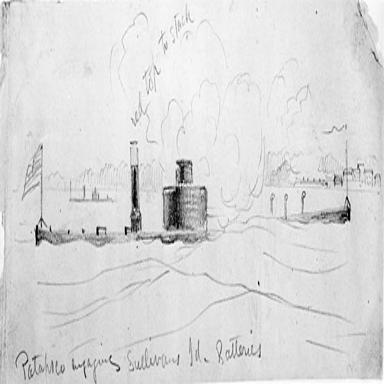 red top to stack
Patapsco engaging Sullivans Id. Batteries